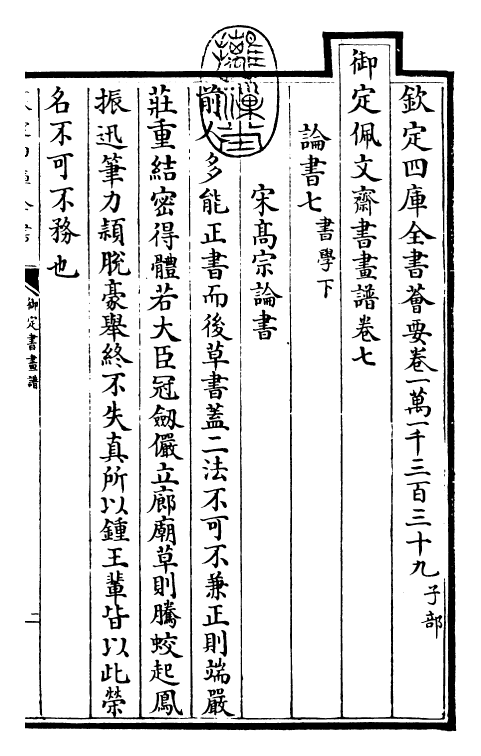 欽定四庫全書薈要卷一萬一千三百三十九子部
御定佩文齋書畫譜卷七
論書七書學下
宋高宗論書
前人多能正書而後草書蓋二法不可不兼正則端嚴
莊重結密得體若大臣冠劒儼立廊廟草則騰蛟起鳳
振迅筆力頴脫豪舉終不失真所以鍾王軰皆以此榮
名不可不務也
御定書畫譜